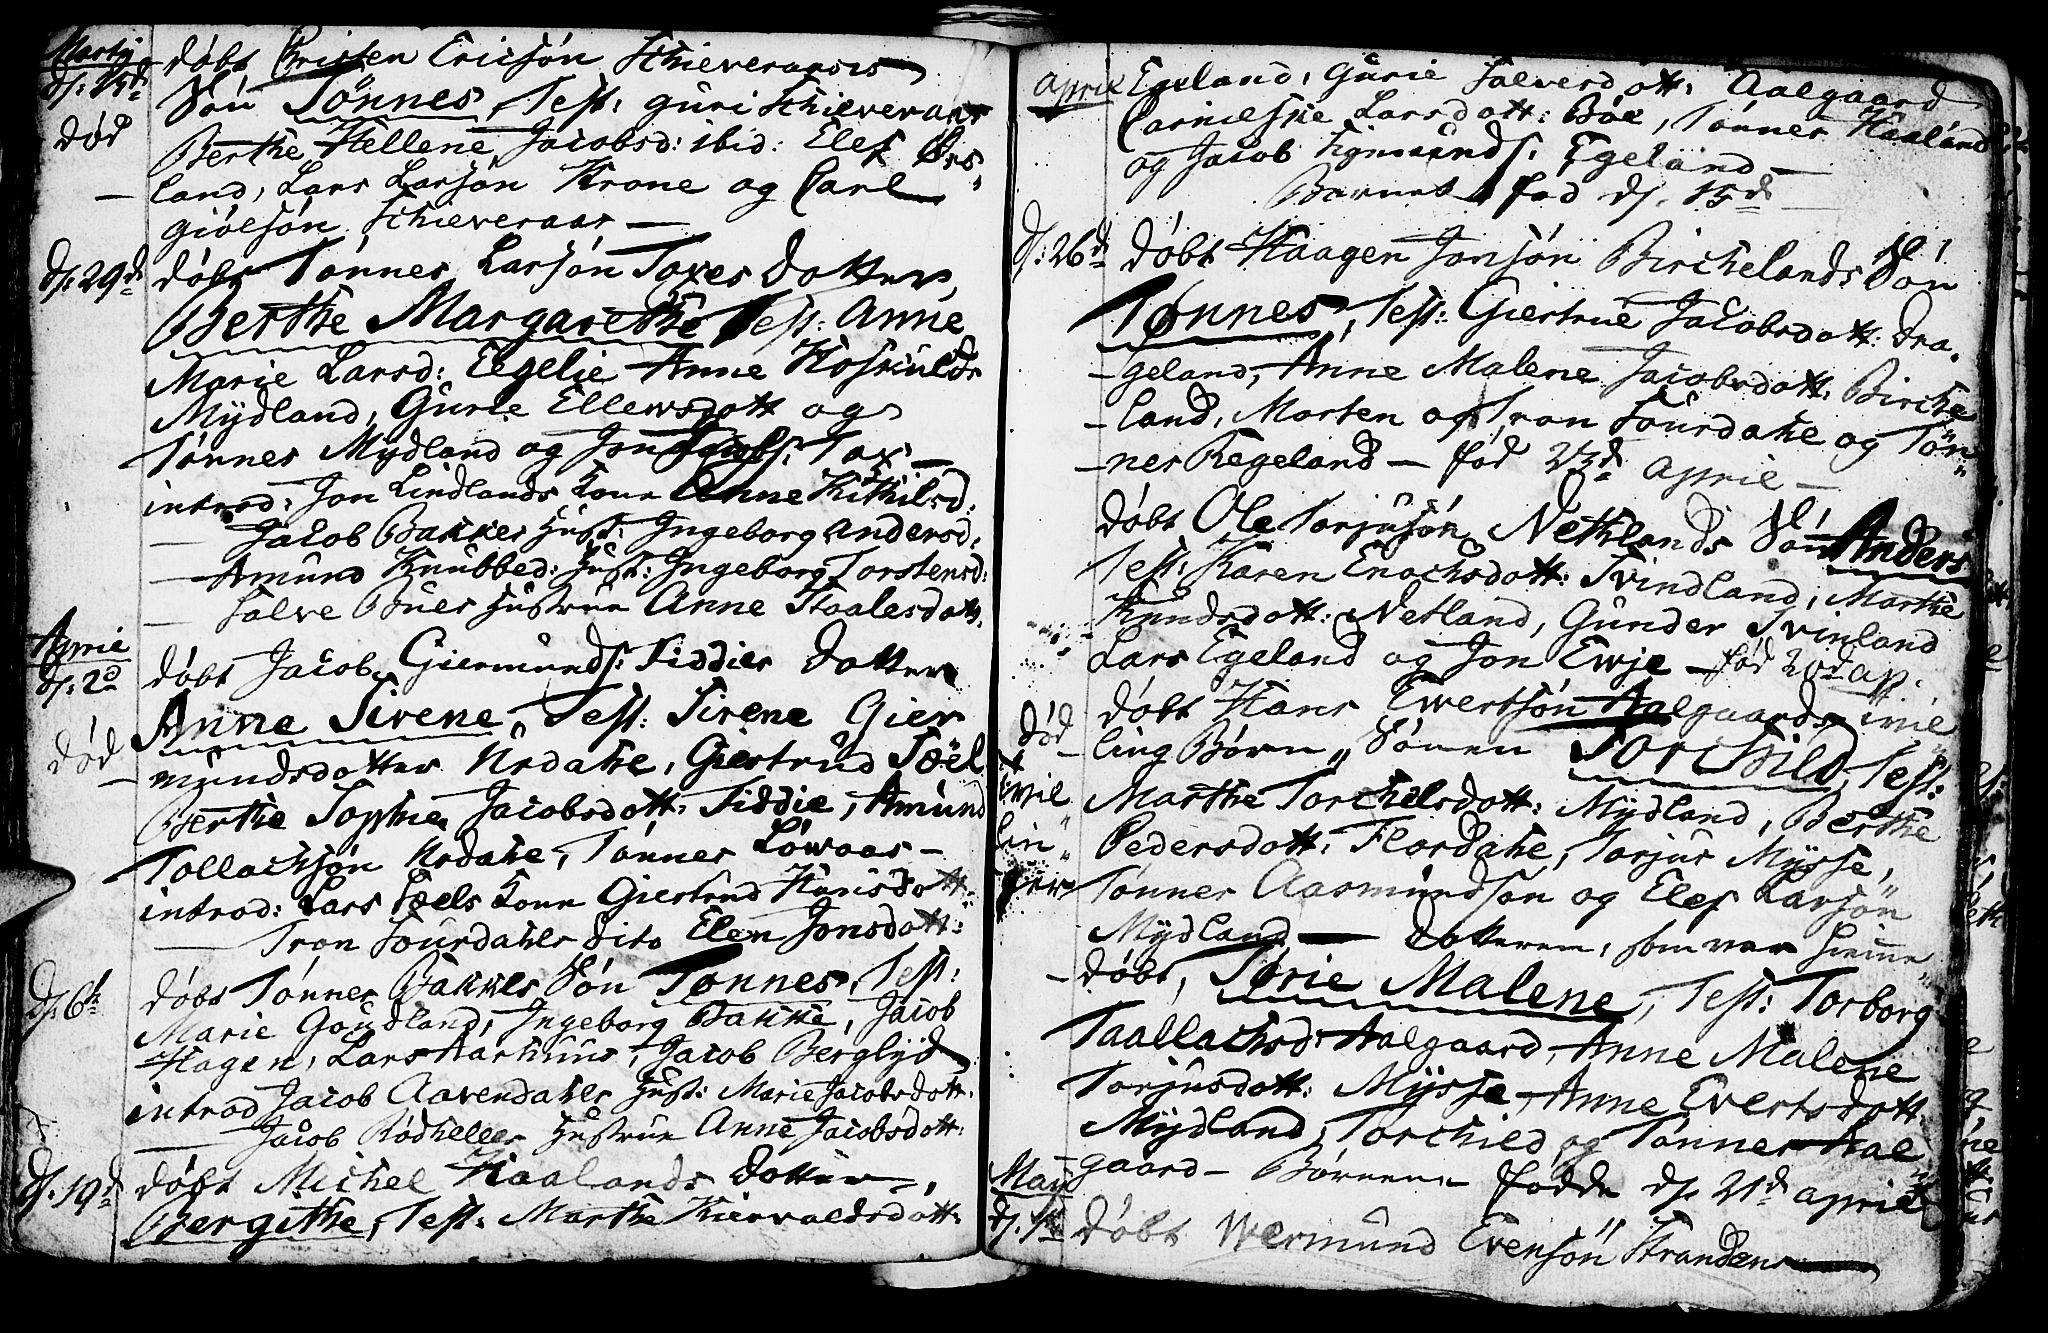 Martij
d: 15d
døbt Christen Ericsøn Schieveraases
Søn Tønnes, Test: Guri Schieveraas
død
Berthe Hellene Jacobsd: ibid: Elef
land, Lars Larsøn Krone og Carl
giølsøn Schieveraas —
d: 29d
døbt Tønnes Larsøn Toxes dotter
Berthe Margarethe Test: Anne
Marie Larsd: Eegelie Anne Hoskulds
Mÿdland, Gurie Ellewsdott og
Tønnes Mydland og Jon Jacobs: Tox —
introd: Jon Lindlands Kone Anne Kithilsd:
— Jacob Bakkes Hust: Ingeborg Andersd:
— Amund Knubbed: Hust: Ingeborg Torstensd:
— Salve Bues Hustrue Anne Staalesdott.
Aprie
d: 2d
døbt Jacob Giermunds: Fiddies dotter
Anne Sirene, Test: Sirene Gier
død
mundsdotter Urdahe, Giertrud Sæel
Berthe Sophie Jacobsdott: Fiddie, Amund
Tollachsøn Urdahe, Tønnes Løvaas —
introd: Lars Sæels Kone Giertrud Hansdott:
— Tron Sourdahes dito Elen Jonsdott:
d: 6t
døbt Tønnes Bakkes Søn Tønnes, Test:
Marie Goudland, Ingeborg Bakke, Jacob
Hagen, Lars Aarhuus, Jacob Berglyd
introd Jacob Aavendahes Hust: Marie Jacobsdott.
— Jacob Rødhelles Hustrue Anne Jacobsdott:
d. 19d
døbt Michel Haalands dotter,
Bergithe, Test: Marthe Kierwaldsdott:
Aprie
Egeland, Gurie Salversdott: Aalgaard
Larsdott: Bøe, Tønnes Haaland
og Jacob Sigmunds: Egeland —
Barnet fød d. 15d
d: 26d
døbt Haagen Jonsøn Birchelands Søn
Tønnes, Test: Giertrue Jacobsdott: Dra-
-geland, Anne Malene Jacobsdott: Birche
-land, Morten og Tron Sourdahe og Tøn-
-nes Regeland — fød 23d Aprie —
døbt Ole Torjusøn Nethlands Søn Anders
Test: Karen Enochsdott: Svindland, Marthe
Knudsdott: Netland, Gunder Svinland
Lars Egeland og Jon Ewje — fød 20d Ap.
døbt Hans Ewertsøn Aalgaards tvil
død
ling Børn, Sønen Torchild, Test:
tvil
Marthe Torchelsdott: Mÿdland, Berthe
lin
Pedersdott: Flordahe, Torjus Mÿsse,
ger
Tønnes Aasmundsøn og Elef Larsøn
Mÿdland — Datteren, som var hieme
-døbt, Torie Malene, Test: Torborg
Taallachsd: Aalgaard, Anne Malene
Torjusdott: Mÿsse, Anne Evertsdott
Mÿdland, Torchild og Tønnes Aal
gaard — Børnene fødde d. 21d Aprie
Maij
d. 1t
døbt Wermund Evensøn Strandens —